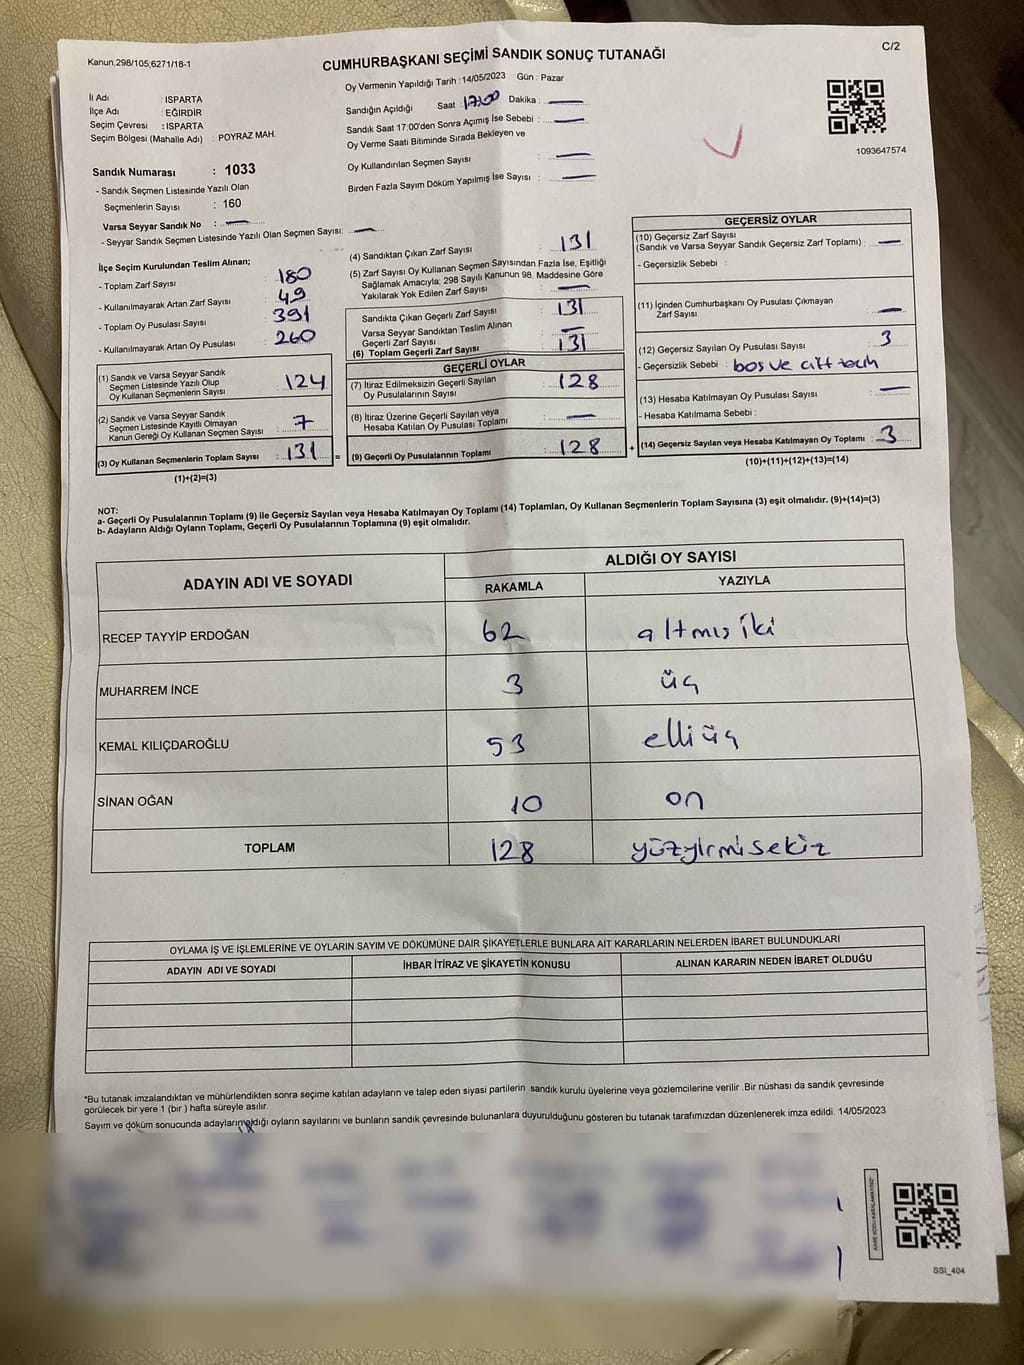 Kanun,298/105,6271/18-1
CUMHURBAŞKANI SEÇİMİ SANDIK SONUÇ TUTANAĞI
C/2
İl Adı : ISPARTA
İlçe Adı : EĞİRDİR
Seçim Çevresi : ISPARTA
Seçim Bölgesi (Mahalle Adı) : POYRAZ MAH.
Oy Vermenin Yapıldığı Tarih : 14/05/2023 Gün : Pazar
Sandığın Açıldığı Saat : 17:00 Dakika :
Sandık Saat 17:00'den Sonra Açımış İse Sebebi :
Oy Verme Saati Bitiminde Sırada Bekleyen ve
Oy Kullandırılan Seçmen Sayısı :
Birden Fazla Sayım Döküm Yapılmış İse Sayısı :
1093647574
Sandık Numarası : 1033
- Sandık Seçmen Listesinde Yazılı Olan
Seçmenlerin Sayısı : 160
Varsa Seyyar Sandık No :
- Seyyar Sandık Seçmen Listesinde Yazılı Olan Seçmen Sayısı:
İlçe Seçim Kurulundan Teslim Alınan;
- Toplam Zarf Sayısı : 180
- Kullanılmayarak Artan Zarf Sayısı : 49
- Toplam Oy Pusulası Sayısı : 391
- Kullanılmayarak Artan Oy Pusulası : 260
(1) Sandık ve Varsa Seyyar Sandık
Seçmen Listesinde Yazılı Olup
Oy Kullanan Seçmenlerin Sayısı : 124
(2) Sandık ve Varsa Seyyar Sandık
Seçmen Listesinde Kayıtlı Olmayan
Kanun Gereği Oy Kullanan Seçmen Sayısı : 7
(3) Oy Kullanan Seçmenlerin Toplam Sayısı : 131 =
(1)+(2)=(3)
(4) Sandıktan Çıkan Zarf Sayısı : 131
(5) Zarf Sayısı Oy Kullanan Seçmen Sayısından Fazla İse, Eşitliği
Sağlamak Amacıyla; 298 Sayılı Kanunun 98. Maddesine Göre
Yakılarak Yok Edilen Zarf Sayısı :
Sandıkta Çıkan Geçerli Zarf Sayısı : 131
Varsa Seyyar Sandıktan Teslim Alınan
Geçerli Zarf Sayısı :
(6) Toplam Geçerli Zarf Sayısı : 131
GEÇERLİ OYLAR
(7) İtiraz Edilmeksizin Geçerli Sayılan
Oy Pusulalarının Sayısı : 128
(8) İtiraz Üzerine Geçerli Sayılan veya
Hesaba Katılan Oy Pusulası Toplamı :
(9) Geçerli Oy Pusulalarının Toplamı : 128 +
GEÇERSİZ OYLAR
(10) Geçersiz Zarf Sayısı
(Sandık ve Varsa Seyyar Sandık Geçersiz Zarf Toplamı) :
- Geçersizlik Sebebi :
(11) İçinden Cumhurbaşkanı Oy Pusulası Çıkmayan
Zarf Sayısı :
(12) Geçersiz Sayılan Oy Pusulası Sayısı : 3
- Geçersizlik Sebebi : bos ve cift
(13) Hesaba Katılmayan Oy Pusulası Sayısı :
- Hesaba Katılmama Sebebi :
(14) Geçersiz Sayılan veya Hesaba Katılmayan Oy Toplamı : 3
(10)+(11)+(12)+(13)=(14)
NOT:
a- Geçerli Oy Pusulalarının Toplamı (9) ile Geçersiz Sayılan veya Hesaba Katılmayan Oy Toplamı (14) Toplamları, Oy Kullanan Seçmenlerin Toplam Sayısına (3) eşit olmalıdır. (9)+(14)=(3)
b- Adayların Aldığı Oyların Toplamı, Geçerli Oy Pusulalarının Toplamına (9) eşit olmalıdır.
ADAYIN ADI VE SOYADI
ALDIĞI OY SAYISI
RAKAMLA YAZIYLA
RECEP TAYYİP ERDOĞAN 62 altmış iki
MUHARREM İNCE 3 üç
KEMAL KILIÇDAROĞLU 53 elli üç
SİNAN OĞAN 10 on
TOPLAM 128 yüzyirmisekiz
OYLAMA İŞ VE İŞLEMLERİNE VE OYLARIN SAYIM VE DÖKÜMÜNE DAİR ŞİKAYETLERLE BUNLARA AİT KARARLARIN NELERDEN İBARET BULUNDUKLARI
ADAYIN ADI VE SOYADI İHBAR İTİRAZ VE ŞİKAYETİN KONUSU ALINAN KARARIN NEDEN İBARET OLDUĞU
*Bu tutanak imzalandıktan ve mühürlendikten sonra seçime katılan adayların ve talep eden siyasi partilerin sandık kurulu üyelerine veya gözlemcilerine verilir .Bir nüshası da sandık çevresinde
görülecek bir yere 1 (bir ) hafta süreyle asılır.
Sayım ve döküm sonucunda adayların aldığı oyların sayılarını ve bunların sandık çevresinde bulunanlara duyurulduğunu gösteren bu tutanak tarafımızdan düzenlenerek imza edildi. 14/05/2023
KARE KODU KARALAMAYINIZ!
SSI_404